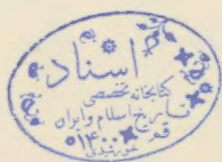 اسناد
کتابخانه تخصصی
تاریخ اسلام و ایران
قم
۱۴۰۰ خورشیدی